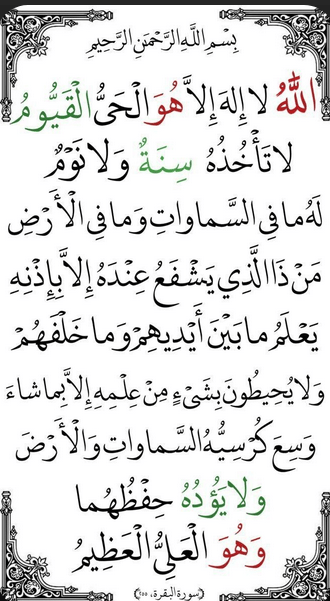 بِسْمِ اللَّهِ الرَّحْمَنِ الرَّحِيمِ
اللَّهُ لَا إِلَهَ إِلَّا هُوَ الْحَيُّ الْقَيُّومُ
لَا تَأْخُذُهُ سِنَةٌ وَلَا نَوْمٌ
لَهُ مَا فِي السَّمَاوَاتِ وَمَا فِي الْأَرْضِ
مَنْ ذَا الَّذِي يَشْفَعُ عِنْدَهُ إِلَّا بِإِذْنِهِ
يَعْلَمُ مَا بَيْنَ أَيْدِيهِمْ وَمَا خَلْفَهُمْ
وَلَا يُحِيطُونَ بِشَيْءٍ مِنْ عِلْمِهِ إِلَّا بِمَا شَاءَ
وَسِعَ كُرْسِيُّهُ السَّمَاوَاتِ وَالْأَرْضَ
وَلَا يَؤُدُهُ حِفْظُهُمَا
وَهُوَ الْعَلِيُّ الْعَظِيمُ
(سورة البقرة، ٢٥٥)